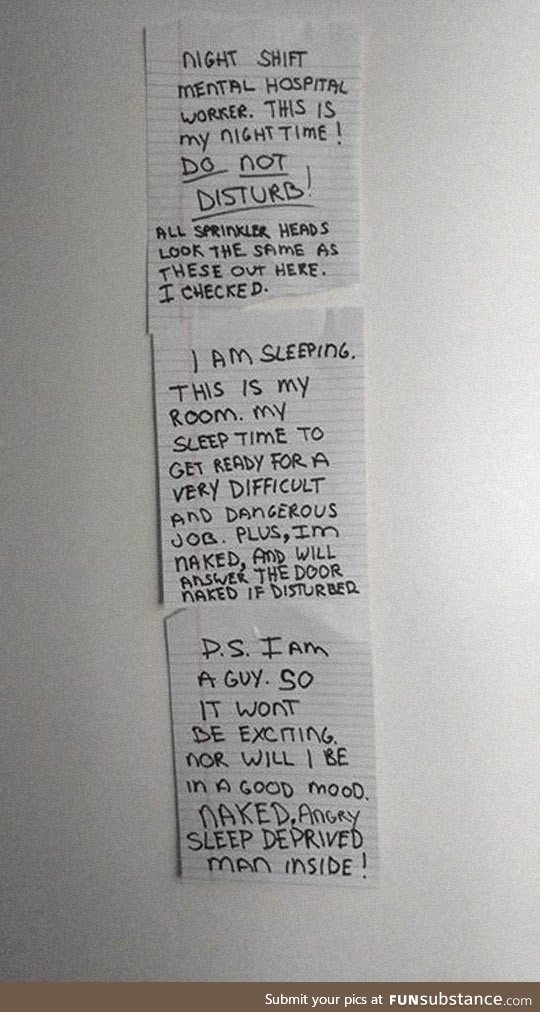 NIGHT SHIFT
MENTAL HOSPITAL
WORKER. THIS IS
MY NIGHT TIME!
DO NOT
DISTURB!
ALL SPRINKLER HEADS
LOOK THE SAME AS
THESE OUT HERE.
I CHECKED.
I AM SLEEPING.
THIS IS MY
ROOM. MY
SLEEP TIME TO
GET READY FOR A
VERY DIFFICULT
AND DANGEROUS
JOB. PLUS, IM
NAKED, AND WILL
ANSWER THE DOOR
NAKED IF DISTURBED
P.S. I AM
A GUY. SO
IT WONT
BE EXCITING.
NOR WILL I BE
IN A GOOD MOOD.
NAKED, ANGRY
SLEEP DEPRIVED
MAN INSIDE!
Submit your pics at FUNsubstance.com